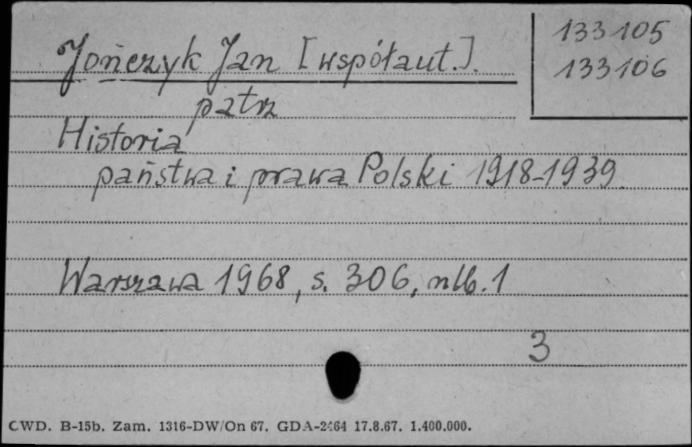 133105
133106
Jończyk Jan [współaut.].
patrz
Historia
państwa i prawa Polski 1918-1939.
Warszawa 1968, s. 306, nlb. 1
3
CWD. B-15b. Zam. 1316-DW/On 67. GDA-2464 17.8.67. 1.400.000.